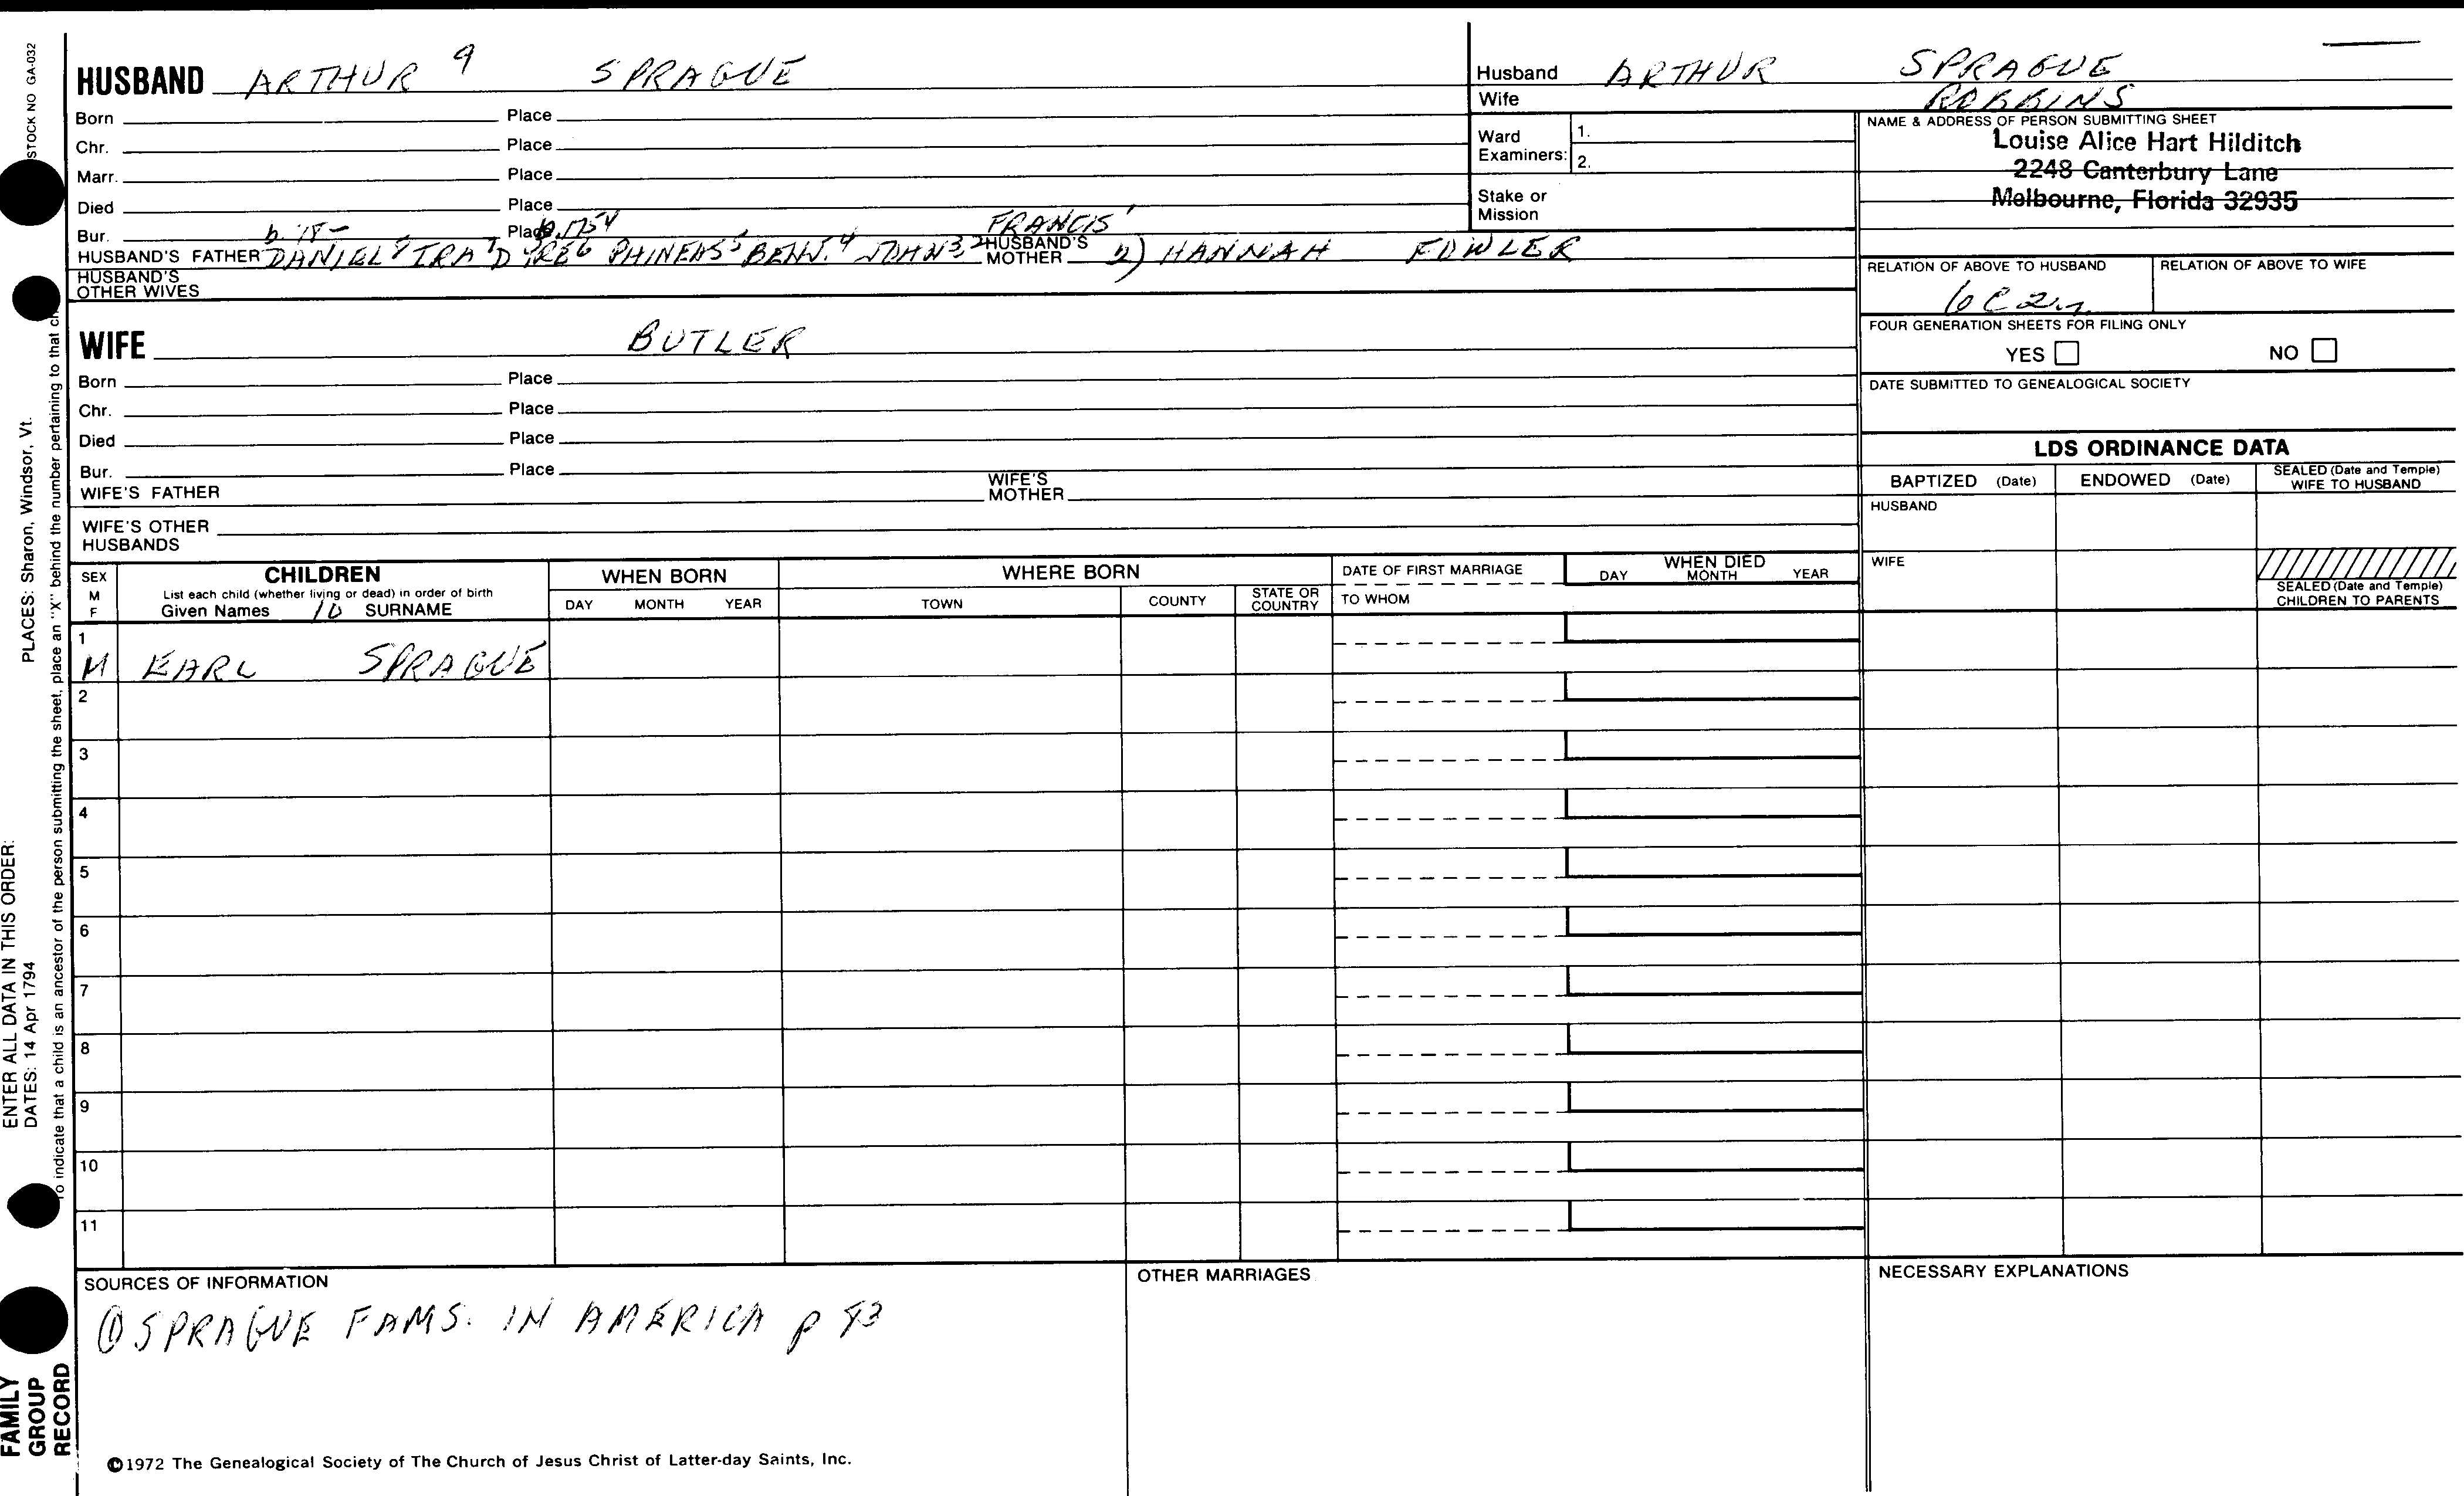 HUSBAND ARTHUR 9 SPRAGUE
Born Place
Chr. Place
Marr. Place
Died Place
Bur. b. 18- Place b. 1754 FRANCIS 1
HUSBAND'S FATHER DANIEL 8 IRA 7 6 PHINEAS 5 BENJ. 4 JOHN 3, 2 HUSBAND'S MOTHER 2) HANNAH FOWLER
HUSBAND'S OTHER WIVES
WIFE BUTLER
Born Place
Chr. Place
Died Place
Bur. Place
WIFE'S FATHER WIFE'S MOTHER
WIFE'S OTHER HUSBANDS
Husband ARTHUR SPRAGUE
Wife ROBBINS
Ward Examiners: 1.
2.
Stake or Mission
NAME & ADDRESS OF PERSON SUBMITTING SHEET
Louise Alice Hart Hilditch
2248 Canterbury Lane
Melbourne, Florida 32935
RELATION OF ABOVE TO HUSBAND RELATION OF ABOVE TO WIFE
6C2r
FOUR GENERATION SHEETS FOR FILING ONLY
YES NO
DATE SUBMITTED TO GENEALOGICAL SOCIETY
LDS ORDINANCE DATA
BAPTIZED (Date) ENDOWED (Date) SEALED (Date and Temple) WIFE TO HUSBAND
HUSBAND
WIFE
SEALED (Date and Temple) CHILDREN TO PARENTS
SEX M F
CHILDREN
List each child (whether living or dead) in order of birth
Given Names 10 SURNAME
WHEN BORN
DAY MONTH YEAR
WHERE BORN
TOWN COUNTY STATE OR COUNTRY
DATE OF FIRST MARRIAGE
TO WHOM
WHEN DIED
DAY MONTH YEAR
1
M EARL SPRAGUE
2
3
4
5
6
7
8
9
10
11
SOURCES OF INFORMATION
① SPRAGUE FAMS. IN AMERICA p 93
OTHER MARRIAGES
NECESSARY EXPLANATIONS
©1972 The Genealogical Society of The Church of Jesus Christ of Latter-day Saints, Inc.
STOCK NO GA-032
PLACES: Sharon, Windsor, Vt.
ENTER ALL DATA IN THIS ORDER:
DATES: 14 Apr 1794
To indicate that a child is an ancestor of the person submitting the sheet, place an "X" behind the number pertaining to that ch
FAMILY GROUP RECORD